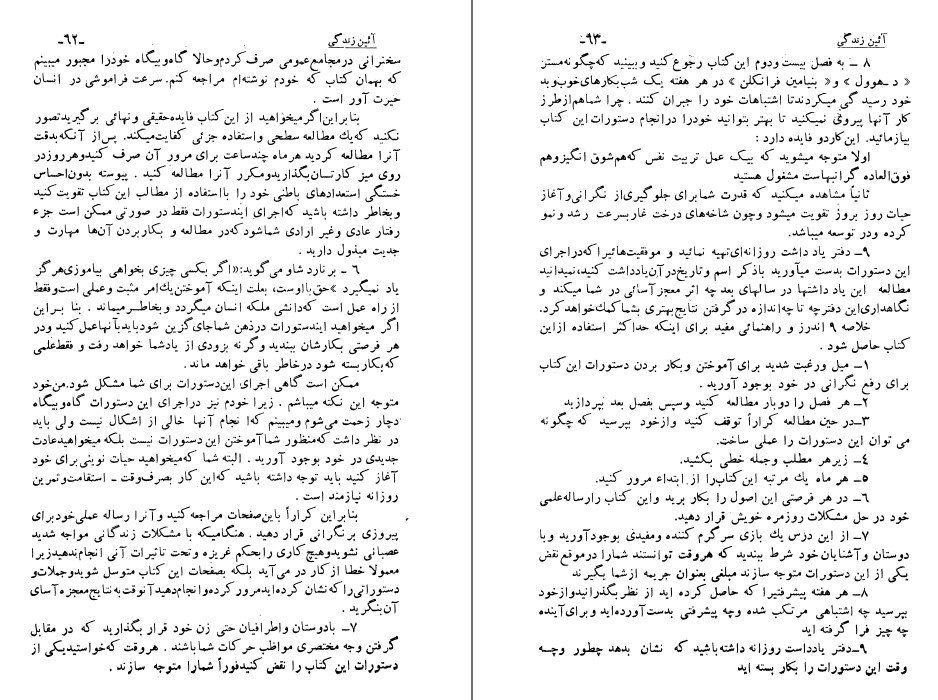 -٦٢- آئین زندگی
سخنرانی درمجامع عمومی صرف کردم وحالا گاه وبیگاه خودرا مجبور میبینم
که بهمان کتاب که خودم نوشته‌ام مراجعه کنم. سرعت فراموشی در انسان
حیرت آور است .
بنابراین اگر میخواهید از این کتاب فایده حقیقی و نهائی برگیرید تصور
نکنید که یك مطالعه سطحی واستفاده جزئی کفایت میکند. پس از آنکه بدقت
آنرا مطالعه کردید هر ماه چند ساعت برای مرور آن صرف کنید وهر روز در
روی میز کارتسان بگذارید ومکرر آنرا مطالعه کنید . پیوسته بدون احساس
خستگی استعدادهای باطنی خود را با استفاده از مطالب این کتاب تقویت کنید
و بخاطر داشته باشید که اجرای ایندستورات فقط در صورتی ممکن است جزء
رفتار عادی وغیر ارادی شما شود که در مطالعه و بکار بردن آن‌ها مهارت و
جدیت مبذول دارید .
٦ - برنارد شاو می‌گوید: «اگر بکسی چیزی بخواهی بیاموزی هرگز
یاد نمیگیرد » حق با اوست، بعلت اینکه آموختن یك امر مثبت وعملی است وفقط
از راه عمل است که دانشی ملکه انسان میگردد و بخاطر میماند . بنا بر این
اگر میخواهید ایندستورات درذهن شما جای گزین شود باید بآنها عمل کنید ودر
هر فرصتی بکارشان ببندید و گرنه بزودی از یادشما خواهد رفت و فقط علمی
که بکار بسته شود در خاطر باقی خواهد ماند .
ممکن است گاهی اجرای این دستورات برای شما مشکل شود. من خود
متوجه این نکته میباشم . زیرا خودم نیز در اجرای این دستورات گاه و بیگاه
دچار زحمت می‌شوم و میبینم که انجام آنها خالی از اشکال نیست ولی باید
در نظر داشت که منظور شما آموختن این دستورات نیست بلکه میخواهید عادت
جدیدی در خود بوجود آورید . البته شما که میخواهید حیات نوینی برای خود
آغاز کنید باید توجه داشته باشید که این کار بصرف وقت - استقامت وتمرین
روزانه نیازمند است .
بنابراین کراراً باین صفحات مراجعه کنید و آنرا رساله عملی خود برای
پیروزی بر نگرانی قرار دهید . هنگامیکه با مشکلات زندگانی مواجه شدید
عصبانی نشوید وهیچ کاری را بحکم غریزه و تحت تاثیرات آنی انجام ندهید زیرا
معمولا خطا از کار در می‌آید بلکه بصفحات این کتاب متوسل شوید وجملات و
دستوراتی را که نشان کرده اید مرور کرده و انجام دهید آنوقت به نتایج معجزه آسای
آن بنگرید .
٧- بادوستان و اطرافیان حتی زن خود قرار بگذارید که در مقابل
گرفتن وجه مختصری مواظب حرکات شما باشند . هر وقت که خواستید یکی از
دستورات این کتاب را نقض کنید فوراً شما را متوجه سازند .
-٦٣- آئین زندگی
٨ - به فصل بیست ودوم این کتاب رجوع کنید و ببینید که چگونه مستر
« د - هوول » و« بنیامین فرانکلن » در هر هفته یک شب بکارهای خوب و بد
خود رسیدگی میکردند تا اشتباهات خود را جبران کنند . چرا شما هم از طرز
کار آنها پیروی نمیکنید تا بهتر بتوانید خودرا درانجام دستورات این کتاب
بیازمائید. این کاردو فایده دارد :
اولا متوجه میشوید که بیک عمل تربیت نفس که هم شوق انگیز وهم
فوق العاده گرانبهاست مشغول هستید
ثانیاً مشاهده میکنید که قدرت شما برای جلوگیری از نگرانی و آغاز
حیات روز بروز تقویت میشود وچون شاخه‌های درخت غار بسرعت رشد ونمو
کرده ودر توسعه میباشد.
٩- دفتر یاد داشت روزانه‌ای تهیه نمائید و موفقیت‌هائیرا که در اجرای
این دستورات بدست میآورید با ذکر اسم و تاریخ در آن یادداشت کنید، نمیدانید
مطالعه این یاد داشتها در سالهای بعد چه اثر معجز آسائی در شما میکند و
نگاهداری این دفتر چه تا چه اندازه در گرفتن نتایج بهتری بشما کمك خواهد کرد.
خلاصه ٩ اندرز و راهنمائی مفید برای اینکه حداکثر استفاده از این
کتاب حاصل شود .
١- میل ورغبت شدید برای آموختن و بکار بردن دستورات این کتاب
برای رفع نگرانی در خود بوجود آورید .
٢- هر فصل را دوبار مطالعه کنید وسپس بفصل بعد بپردازید
٣- در حین مطالعه کراراً توقف کنید و از خود بپرسید که چگونه
می توان این دستورات را عملی ساخت.
٤ - زیر هر مطلب وجمله خطی بکشید.
٥ـ هر ماه یك مرتبه این کتاب را از ابتداء مرور کنید.
٦- در هر فرصتی این اصول را بکار برید و این کتاب را رساله علمی
خود در حل مشکلات روزمره خویش قرار دهید.
٧- از این درس یك بازی سرگرم کننده ومفیدی بوجود آورید و با
دوستان و آشنایان خود شرط ببندید که هروقت توانستند شما را در موقع نقض
یکی از این دستورات متوجه سازند مبلغی بعنوان جریمه از شما بگیرند
٨- هر هفته پیشرفتیرا که حاصل کرده اید از نظر بگذرانید واز خود
بپرسید چه اشتباهی مرتکب شده وچه پیشرفتی بدست آورده اید و برای آینده
چه چیز فرا گرفته اید
٩- دفتر یادداست روزانه داشته باشید که نشان بدهد چطور وچه
وقت این دستورات را بکار بسته اید